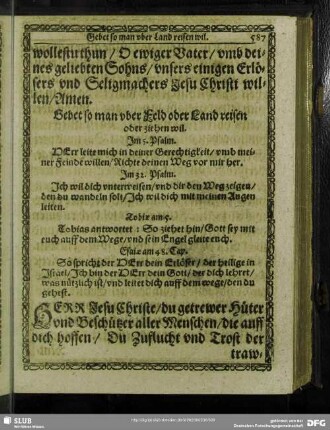 Gebet so man vber Land reisen wil. 587
wollest thun / O ewiger Vater / vmb dei-
nes geliebten Sohns / vnsers einigen Erlö-
sers vnd Seligmachers Jesu Christi wil-
len / Amen.
Gebet so man vber Feld oder Land reisen
oder ziehen wil.
Im 5. Psalm.
HErr leite mich in deiner Gerechtigkeit / vmb mei-
ner Feinde willen / Richte deinen Weg vor mir her.
Im 32. Psalm.
Ich wil dich vnterweisen / vnd dir den Weg zeigen /
den du wandeln solt / Ich wil dich mit meinen Augen
leiten.
Tobiæ am 5.
Tobias antwortet : So ziehet hin / Gott sey mit
euch auff dem Wege / vnd sein Engel gleite euch.
Esaiæ am 48. Cap.
So spricht der HErr dein Erlöser / der heilige in
Israel / Ich bin der HErr dein Gott / der dich lehret /
was nützlich ist / vnd leitet dich auff dem wege / den du
gehest.
HERR Jesu Christe / du getrewer Hüter
vnd Beschützer aller Menschen / die auff
dich hoffen / Du Zuflucht vnd Trost der
traw-
SLUB
Wir führen Wissen.
gefördert von der
Deutschen Forschungsgemeinschaft
DFG